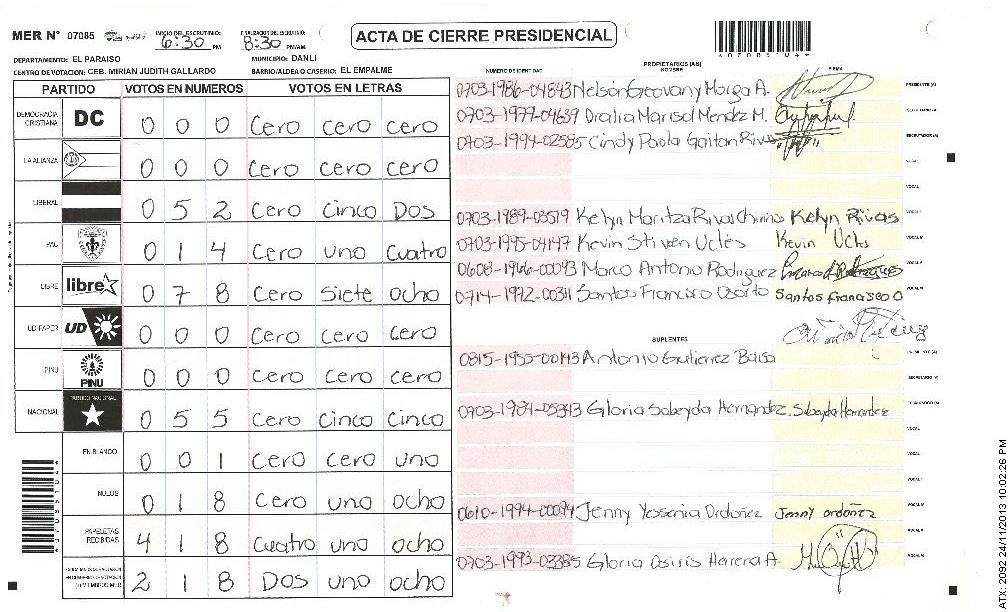 MER N° 07085
INICIO DEL ESCRUTINIO: 6:30 PM
FINALIZACION DEL ESCRUTINIO: 8:30 PM/AM
ACTA DE CIERRE PRESIDENCIAL
DEPARTAMENTO: EL PARAISO MUNICIPIO: DANLI
CENTRO DE VOTACION: CEB. MIRIAN JUDITH GALLARDO BARRIO/ALDEA O CASERIO: EL EMPALME
PARTIDO VOTOS EN NUMEROS VOTOS EN LETRAS
DEMOCRACIA CRISTIANA DC 0 0 0 Cero Cero Cero
LA ALIANZA 0 0 0 Cero Cero Cero
LIBERAL 0 5 2 Cero Cinco Dos
PAC 0 1 4 Cero uno Cuatro
LIBRE libre 0 7 8 Cero Siete ocho
UD-FAPER UD 0 0 0 Cero Cero Cero
PINU PINU 0 0 0 Cero Cero Cero
NACIONAL PARTIDO NACIONAL 0 5 5 Cero Cinco Cinco
EN BLANCO 0 0 1 Cero Cero uno
NULOS 0 1 8 Cero uno ocho
PAPELETAS RECIBIDAS 4 1 8 Cuatro uno ocho
2 1 8 Dos uno ocho
NUMERO DE IDENTIDAD PROPIETARIOS (AS) NOMBRE FIRMA
0703-1986-04843 Nelson Geovany Morga A. PRESIDENTE (A)
0703-1977-04639 Dralia Marisol Mendez M. SECRETARIO (A)
0703-1994-02585 Cindy Paola Gaitan Rivas ESCRUTADOR (A)
VOCAL I
VOCAL
0703-1989-03519 Kelyn Maritza Rivas Chirino Kelyn Rivas
0703-1995-04147 Kevin Stiven Uclés Kevin Ucls
0608-1966-00093 Marco Antonio Rodriguez
0714-1972-00311 Santos Francisco Osorto Santos francisco O
SUPLENTES
0815-1955-00143 Antonio Gutierrez Barsa
0703-1984-05343 Gloria Sobeyda Hernandez. Sobeyda Hernandez
VOCAL
VOCAL I
0610-1994-00094 Jenny Yessenia Ordoñez Jenny ordoñez
0703-1993-03385 Gloria Osiris Harera A.
ATX: 2092 24/11/2013 10:02:26 PM